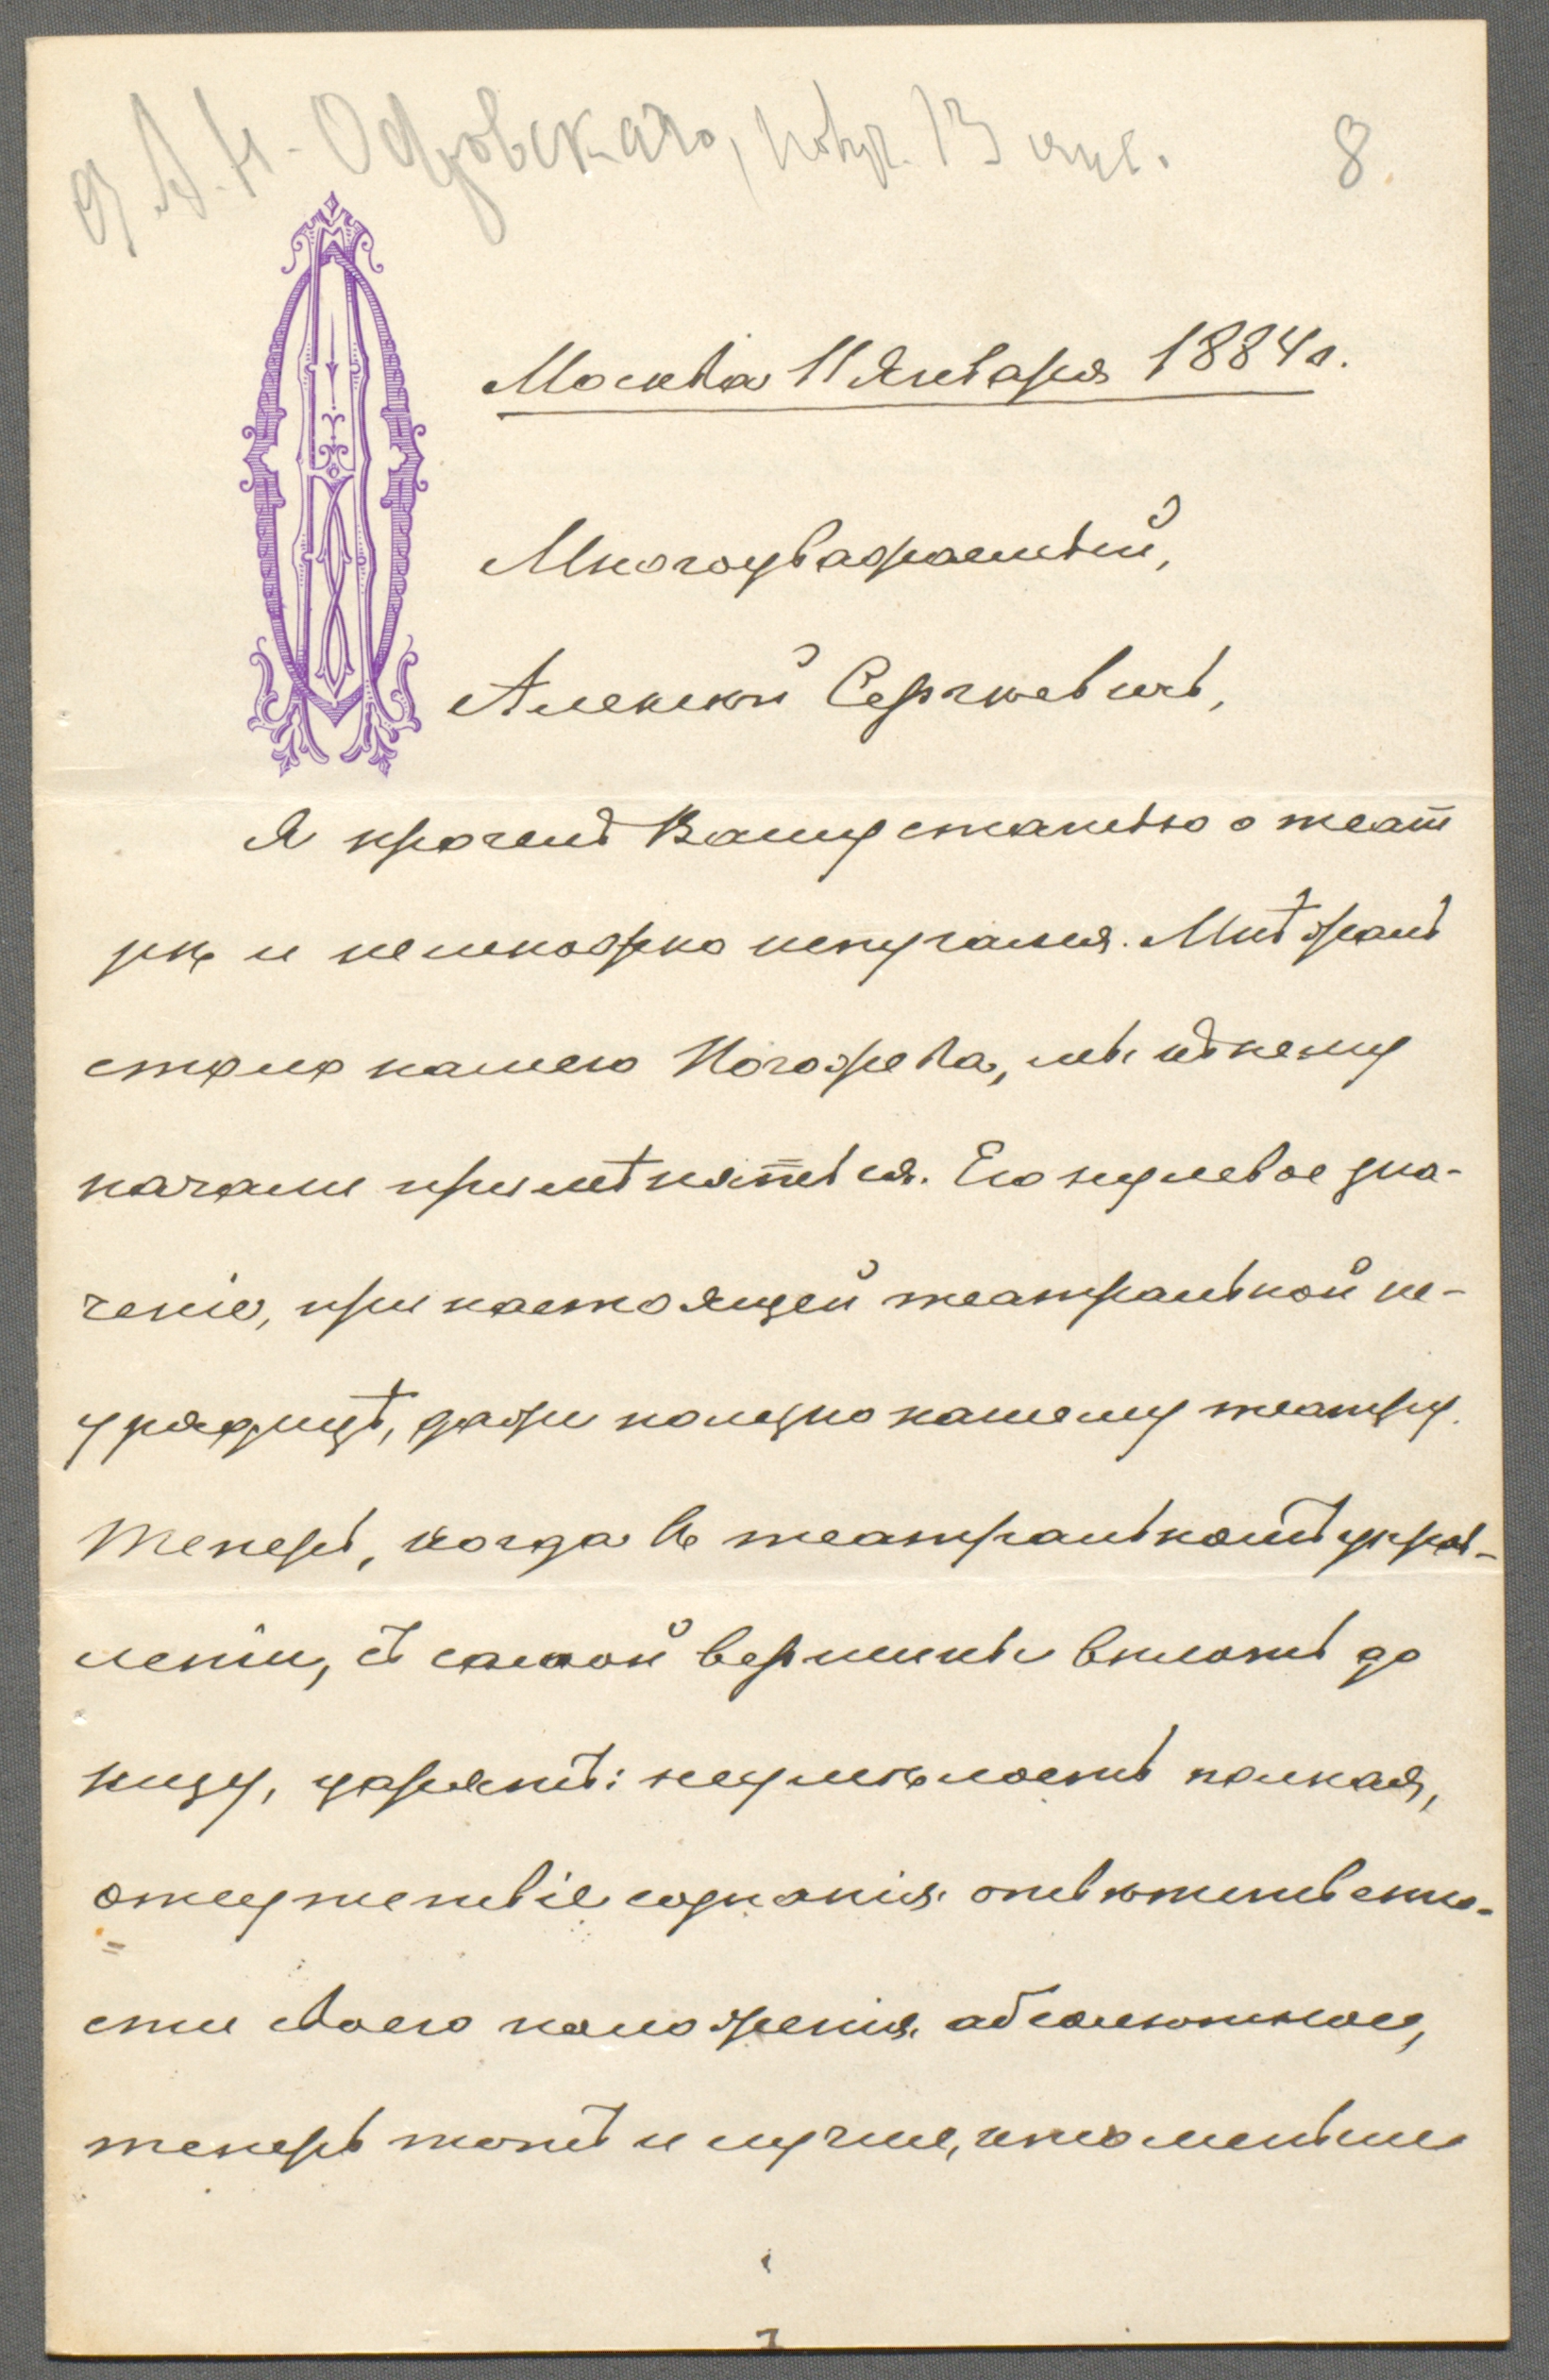 От А. Н. Островскаго, получ. 13 янв.
8.
Москва 11 Января 1884 г.
Многоуважаемый,
Алексѣй Сергѣевичъ,
Я прочелъ Вашу статью о теат
рѣ и немножко испугался. Мнѣ жаль
стало нашего Погожева, мы къ нему
начали примѣняться. Его нулевое зна-
ченіе, при настоящей театральной не-
урядицѣ, даже полезно нашему театру.
Теперь, когда въ театральномъ управ-
леніи, съ самой вершины вплоть до
низу, царятъ: неумѣлость полная,
отсутствіе сознанія отвѣтственно-
сти своего положенія абсолютное,
теперь тотъ и лучше, кто меньше